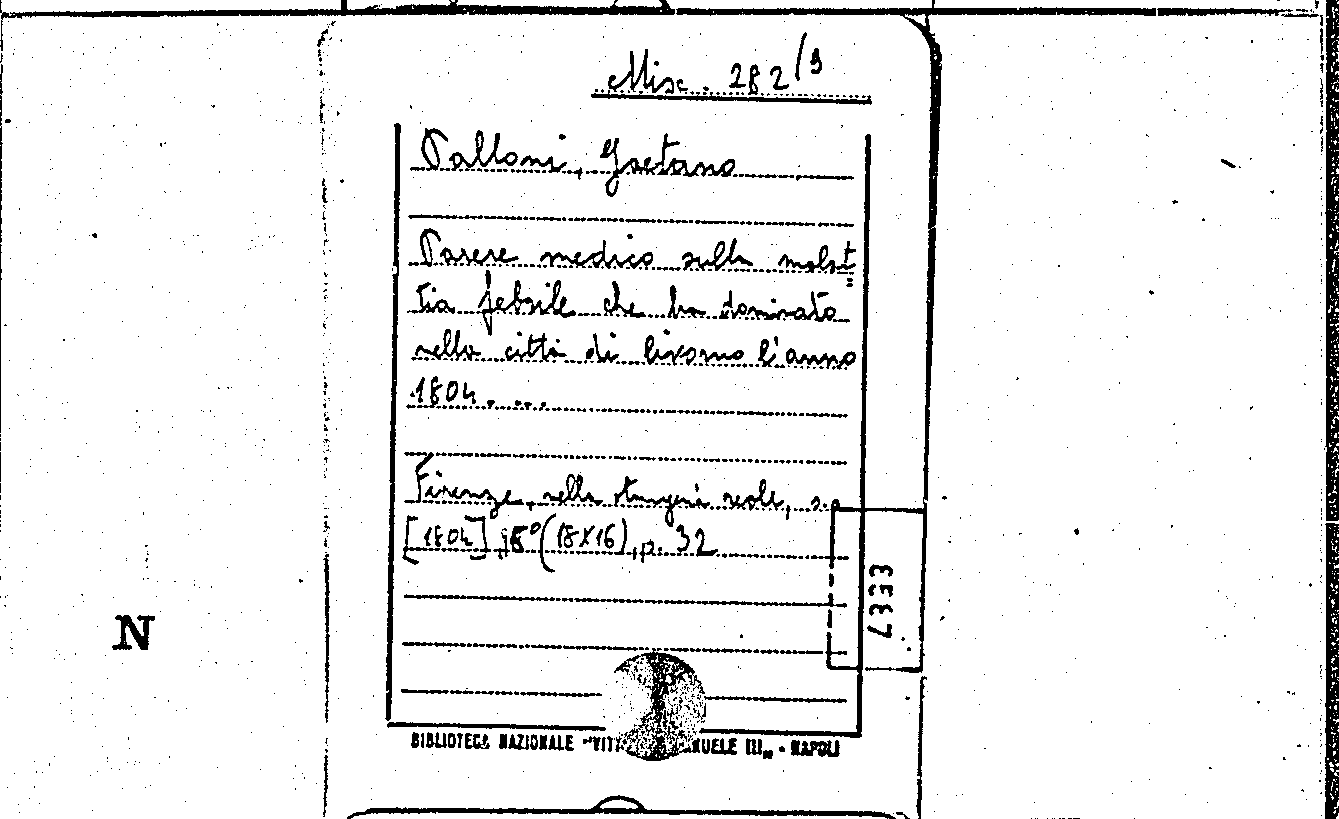 Misc. 282/9
Palloni, Gaetano
Parere medico sulla malat=
tia febrile che ha dominato
nella città di Livorno l'anno
1804. ...
Firenze, nella stamperia reale, s.a
[1804], 8° (18X16), p. 32
3337
N
BIBLIOTECA NAZIONALE "VITT ANUELE III„ - NAPOLI